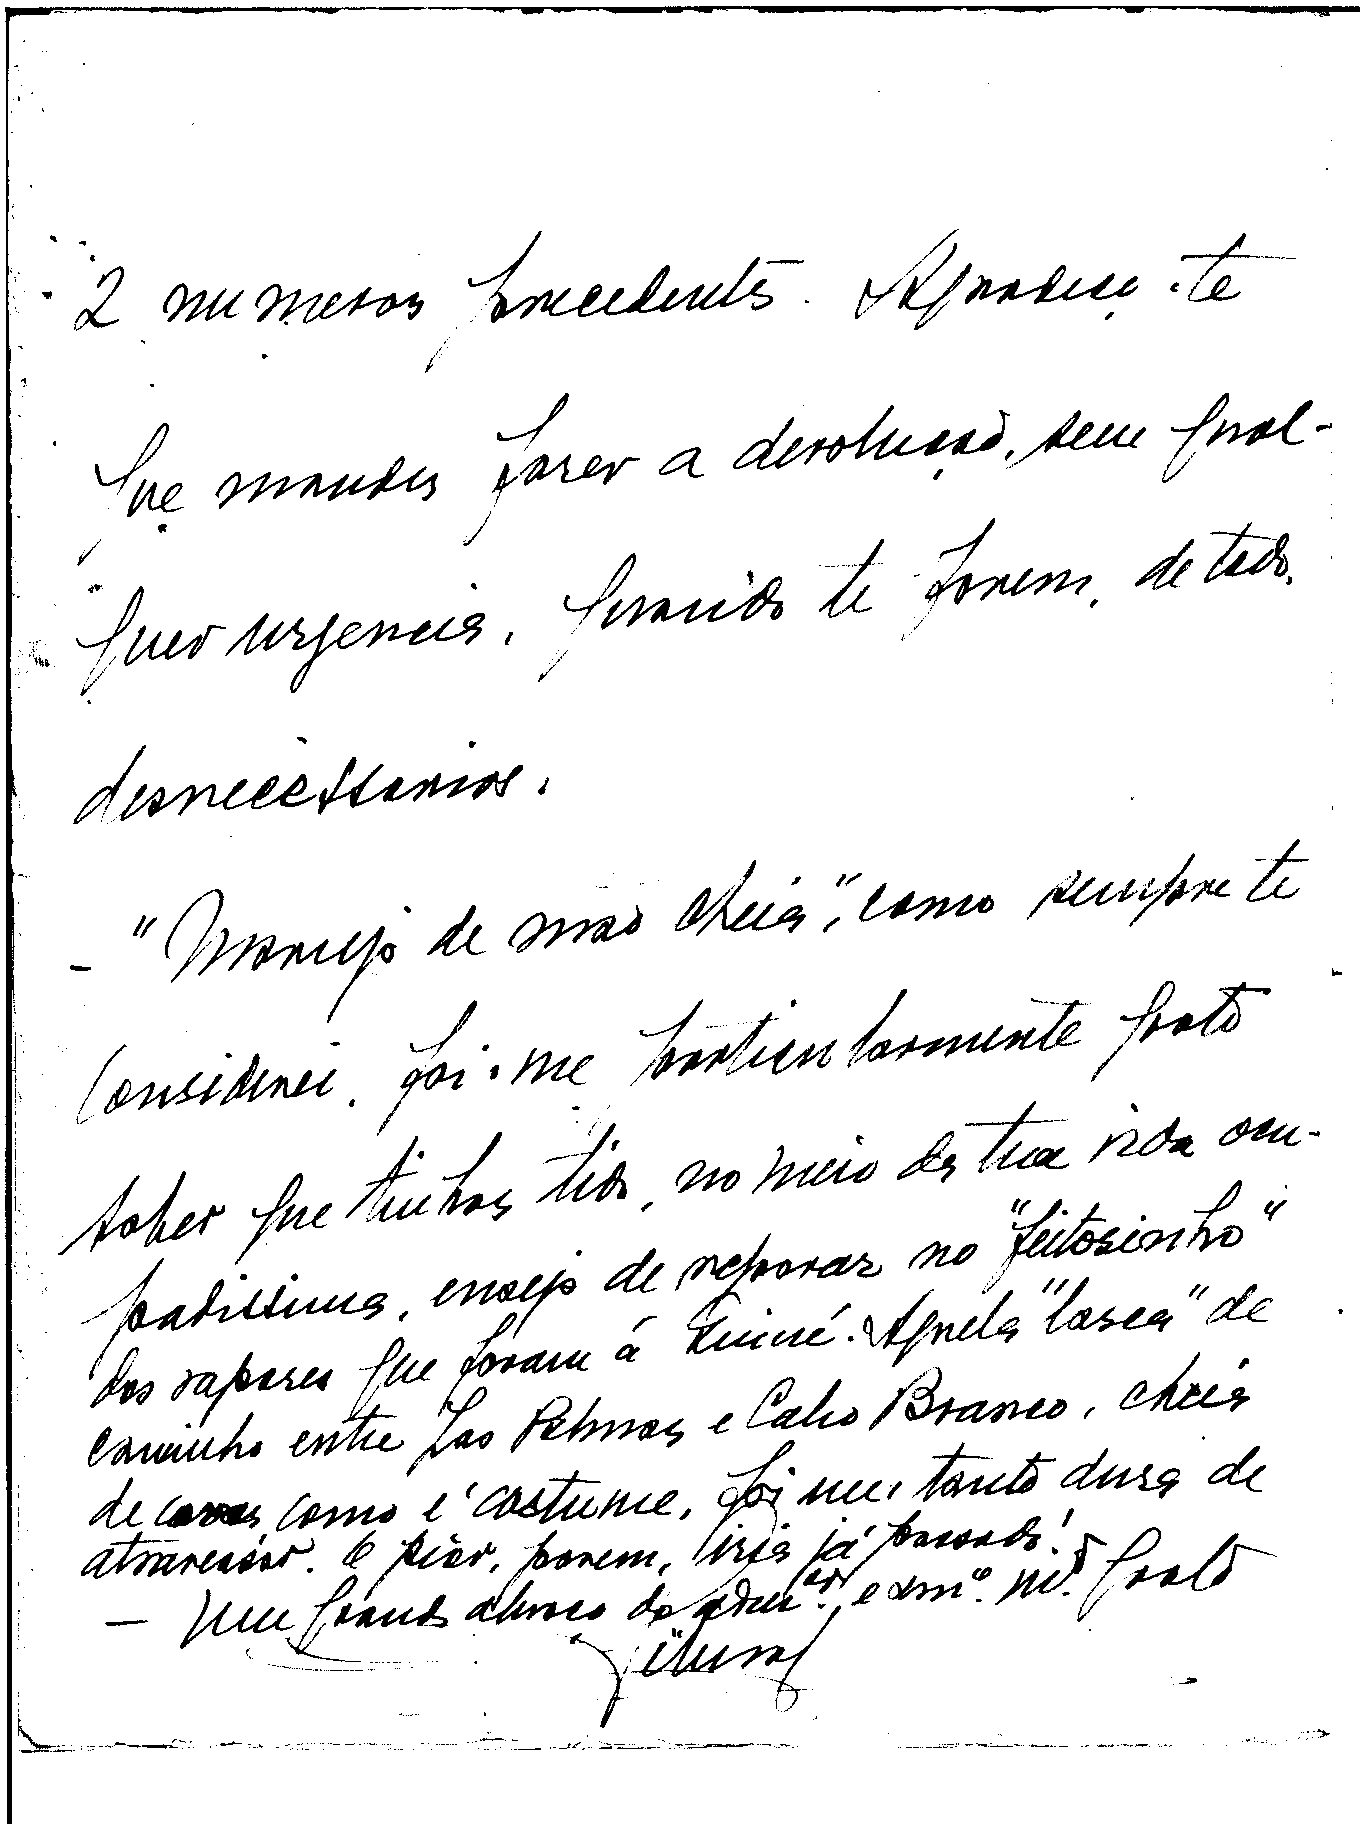 2 numeros precedentes. Agradeço-te
que mandes fazer a devolução, sem qual-
quer urgencia, quando te forem, de todo,
desnecessarios.
- "Marujo de mão cheia", como sempre te
considerei, foi-me particularmente grato
saber que tinhas tido, no meio da tua vida ocu-
padissima, ensejo de reparar no "feitosinho"
dos vapores que foram á Guiné. Aquela "lasca" de
caminho entre Las Palmas e Cabo Branco, cheia
de como é costume, foi um tanto dura de
atravessar. O pior, porem, iria já passado!
- Um grande abraço do adm.ᵒʳ e am.º m.ᵗᵒ grato